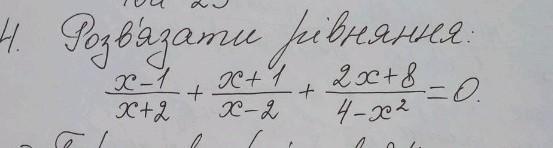 4. Розв'язати рівняння:
x-1/x+2 + x+1/x-2 + 2x+8/4-x² = 0.